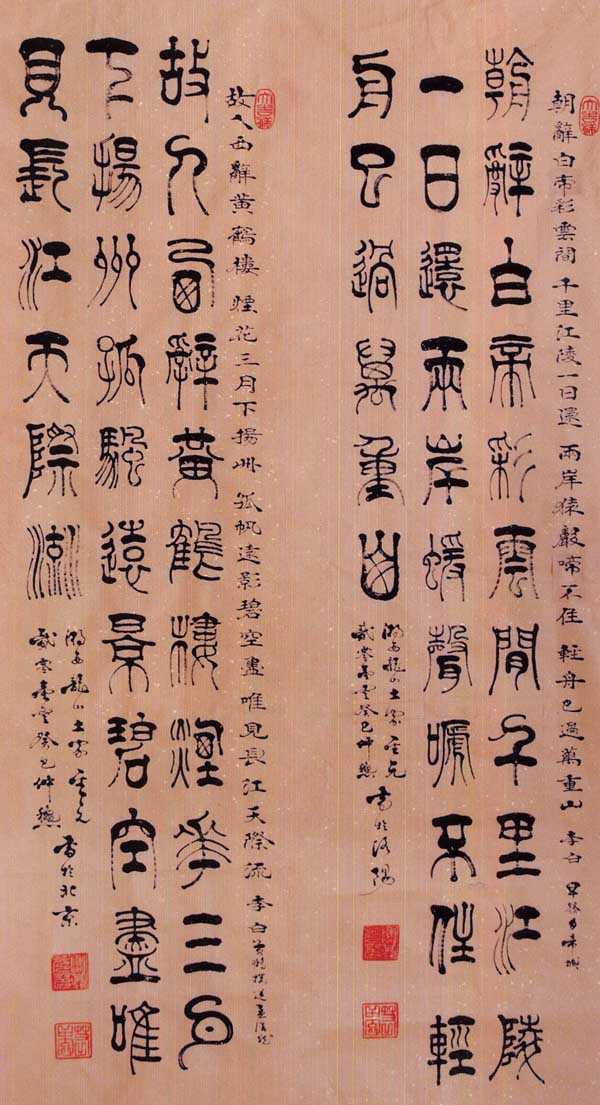 朝辭白帝彩雲間 千里江陵一日還 兩岸猿聲啼不住 輕舟已過萬重山 李白
朝辭白帝彩雲間千里江陵
一日還兩岸蝯聲嗁不住輕
舟已過萬重山
書於洛陽
故人西辭黃鶴樓 煙花三月下揚州 孤帆遠影碧空盡 唯見長江天際流 李白 黃鶴樓送孟浩然
故人西辭黃鶴樓煙花三月
下揚州孤颿遠景碧空盡唯
見長江天際流
書於北京